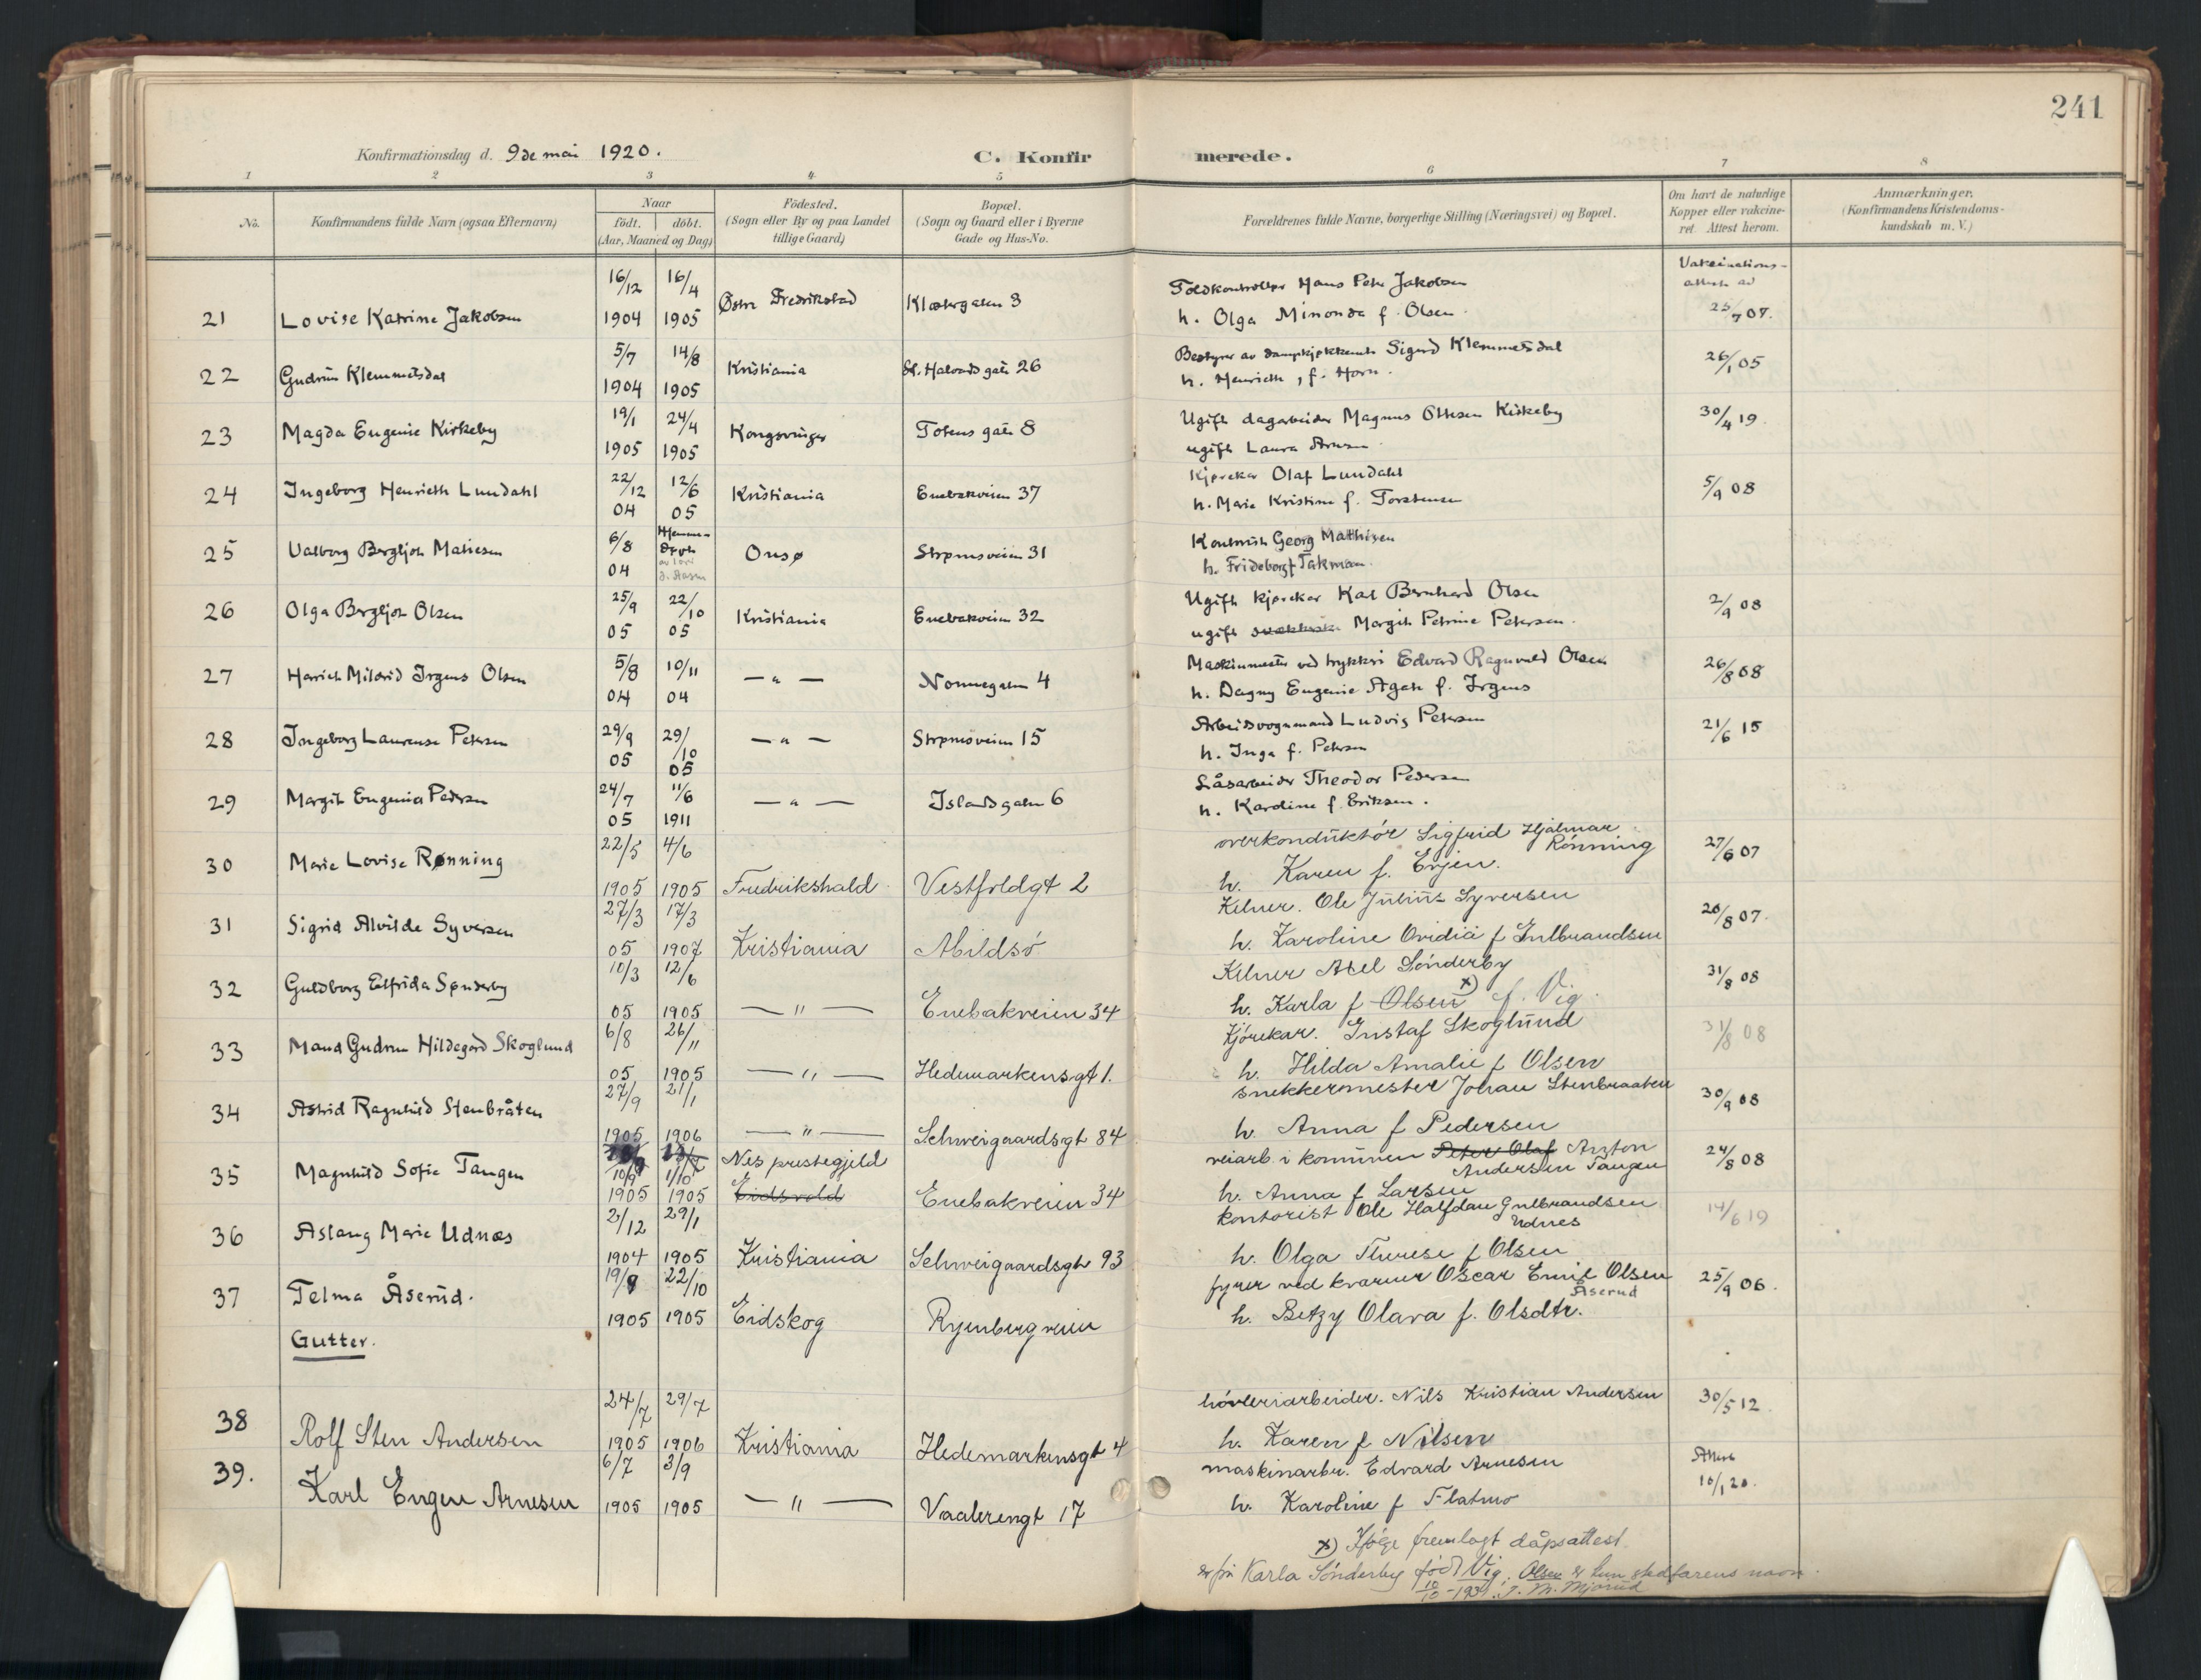 241
Konfirmationsdag d. 9de mai 1920.
C. Konfirmerede.
1 2 3 4 5 6 7 8
No.
Konfirmandens fulde Navn (ogsaa Efternavn)
Naar
født. døbt.
(Aar, Maaned og Dag)
Fødested.
(Sogn eller By og paa Landet
tillige Gaard)
Bopæl.
(Sogn og Gaard eller i Byerne
Gade og Hus-No.
Forældrenes fulde Navne, borgerlige Stilling (Næringsvei) og Bopæl.
Om havt de naturlige
Kopper eller vakcine-
ret. Attest herom.
Anmærkninger.
(Konfirmandens Kristendoms-
kundskab m. V.)
Vakcinations-
attest av
21 Lovise Katrine Jakobsen 16/12 1904 16/4 1905 Østre Fredrikstad Klostergaten 3 Toldkontrollør Hans Peter Jakobsen 25/7 07.
h. Olga Minonda f. Olsen.
22 Gudrun Klemmetsdal 5/7 1904 14/8 1905 Kristiania St. Halvards gate 26 Bestyrer av dampkjøkkenet Sigurd Klemmetsdal 26/1 05
h. Henriette, f. Horn.
23 Magda Eugenie Kirkeby 19/1 1905 24/4 1905 Kongsvinger Totens gate 8 Ugift dagarbeider Magnus Ottesen Kirkeby 30/4 19.
ugift Laura Arnesen
24 Ingeborg Henriette Lundahl 22/12 04 12/6 05 Kristiania Enebakveien 37 Kjørekar Olaf Lundahl 5/9 08
h. Marie Kristine f. Torstensen
25 Valborg Bergljot Mathiesen 6/8 04 Hjemme-døpt Onsø Strømsveien 31 Kontorist Georg Mathisen
h. Frideborg f Takman.
26 Olga Bergljot Olsen 25/9 05 22/10 05 Kristiania Enebakveien 32 Ugift kjørekar Karl Bernhard Olsen 2/9 08
ugift Margit Petrine Petersen.
27 Harriet Mildrid Irgens Olsen 5/8 04 10/11 04 — " — Nonnegaten 4 Maskinmester ved trykkeri Edvard Ragnvald Olsen 26/8 08
h. Dagny Eugenie Agate f. Irgens
28 Ingeborg Laurense Petersen 29/9 05 29/10 05 — " — Strømsveien 15 Arbeidsvognmand Ludvig Petersen 21/6 15
h. Inga f. Petersen
29 Margit Eugenia Pedersen 24/7 05 11/6 1911 — " — Islands gaten 6 Låsarbeider Theodor Pedersen
h. Karoline f. Eriksen.
30 Marie Lovise Rønning 22/5 1905 4/6 1905 Fredrikshald Vestfoldgt 2 overkonduktör Sigfrid Hjalmar Rönning 27/6 07
h. Karen f. Evjen.
31 Sigrid Alvilde Syversen 27/3 05 17/3 1907 Kristiania Abildsö Kelner. Ole Julius Syversen 20/8 07.
h. Karoline Ovidia f Gulbrandsen
32 Guldborg Elfrida Sønderby 10/3 05 12/6 1905 — " — Enebakveien 34 Kelner Axel Sönderby 31/8 08
h. Karla f Olsen x) f. Vig.
33 Maud Gudrun Hildegard Skoglund 6/8 05 26/11 1905 — " — Hedemarkensgt 1. Kjörekar. Gustaf Skoglund 31/8 08
h. Hilda Amalie f Olsen
34 Astrid Ragnhild Stenbråten 27/9 1905 21/1 1906 — " — Schweigaardsgt 84 snekkermester Johan Stenbraaten 30/9 08
h. Anna f Pedersen
35 Magnhild Sofie Tangen 10/9 1905 1/10 1905 Nes prestegjeld Eidsvold Enebakveien 34 veiarb. i komunen Peter Olaf Anton Andersen Tangen 24/8 08
h. Anna f Larsen
36 Aslaug Marie Udnæs 2/12 1904 29/1 1905 Kristiania Schweigaardsgt 93 kontorist Ole Halfdan Gulbrandsen Udnes 14/6 19
h. Olga Therese f Olsen
37 Telma Åserud. 19/8 1905 22/10 1905 Eidskog Ryenbergveien fyrer ved kverner Oscar Emil Olsen Åserud 25/9 06.
h. Betzy Olava f. Olsdtr.
Gutter.
38 Rolf Sten Andersen 24/7 1905 29/7 1906 Kristiania Hedemarkensgt 4 höveriarbeider. Nils Kristian Andersen 30/5 12.
h. Karen f Nilsen
39. Karl Eugen Arnesen 6/7 1905 3/9 1905 — " — Vaalerengt 17 maskinarbr. Edvard Arnesen Attest 10/1 20.
h. Karoline f Flatmo
x) Ifölge fremlagt dåpsattest
er fru Karla Sönderby född Vig. Olsen er hun stedfarens navn.
10/10 - 1939. T. M. Mjörud